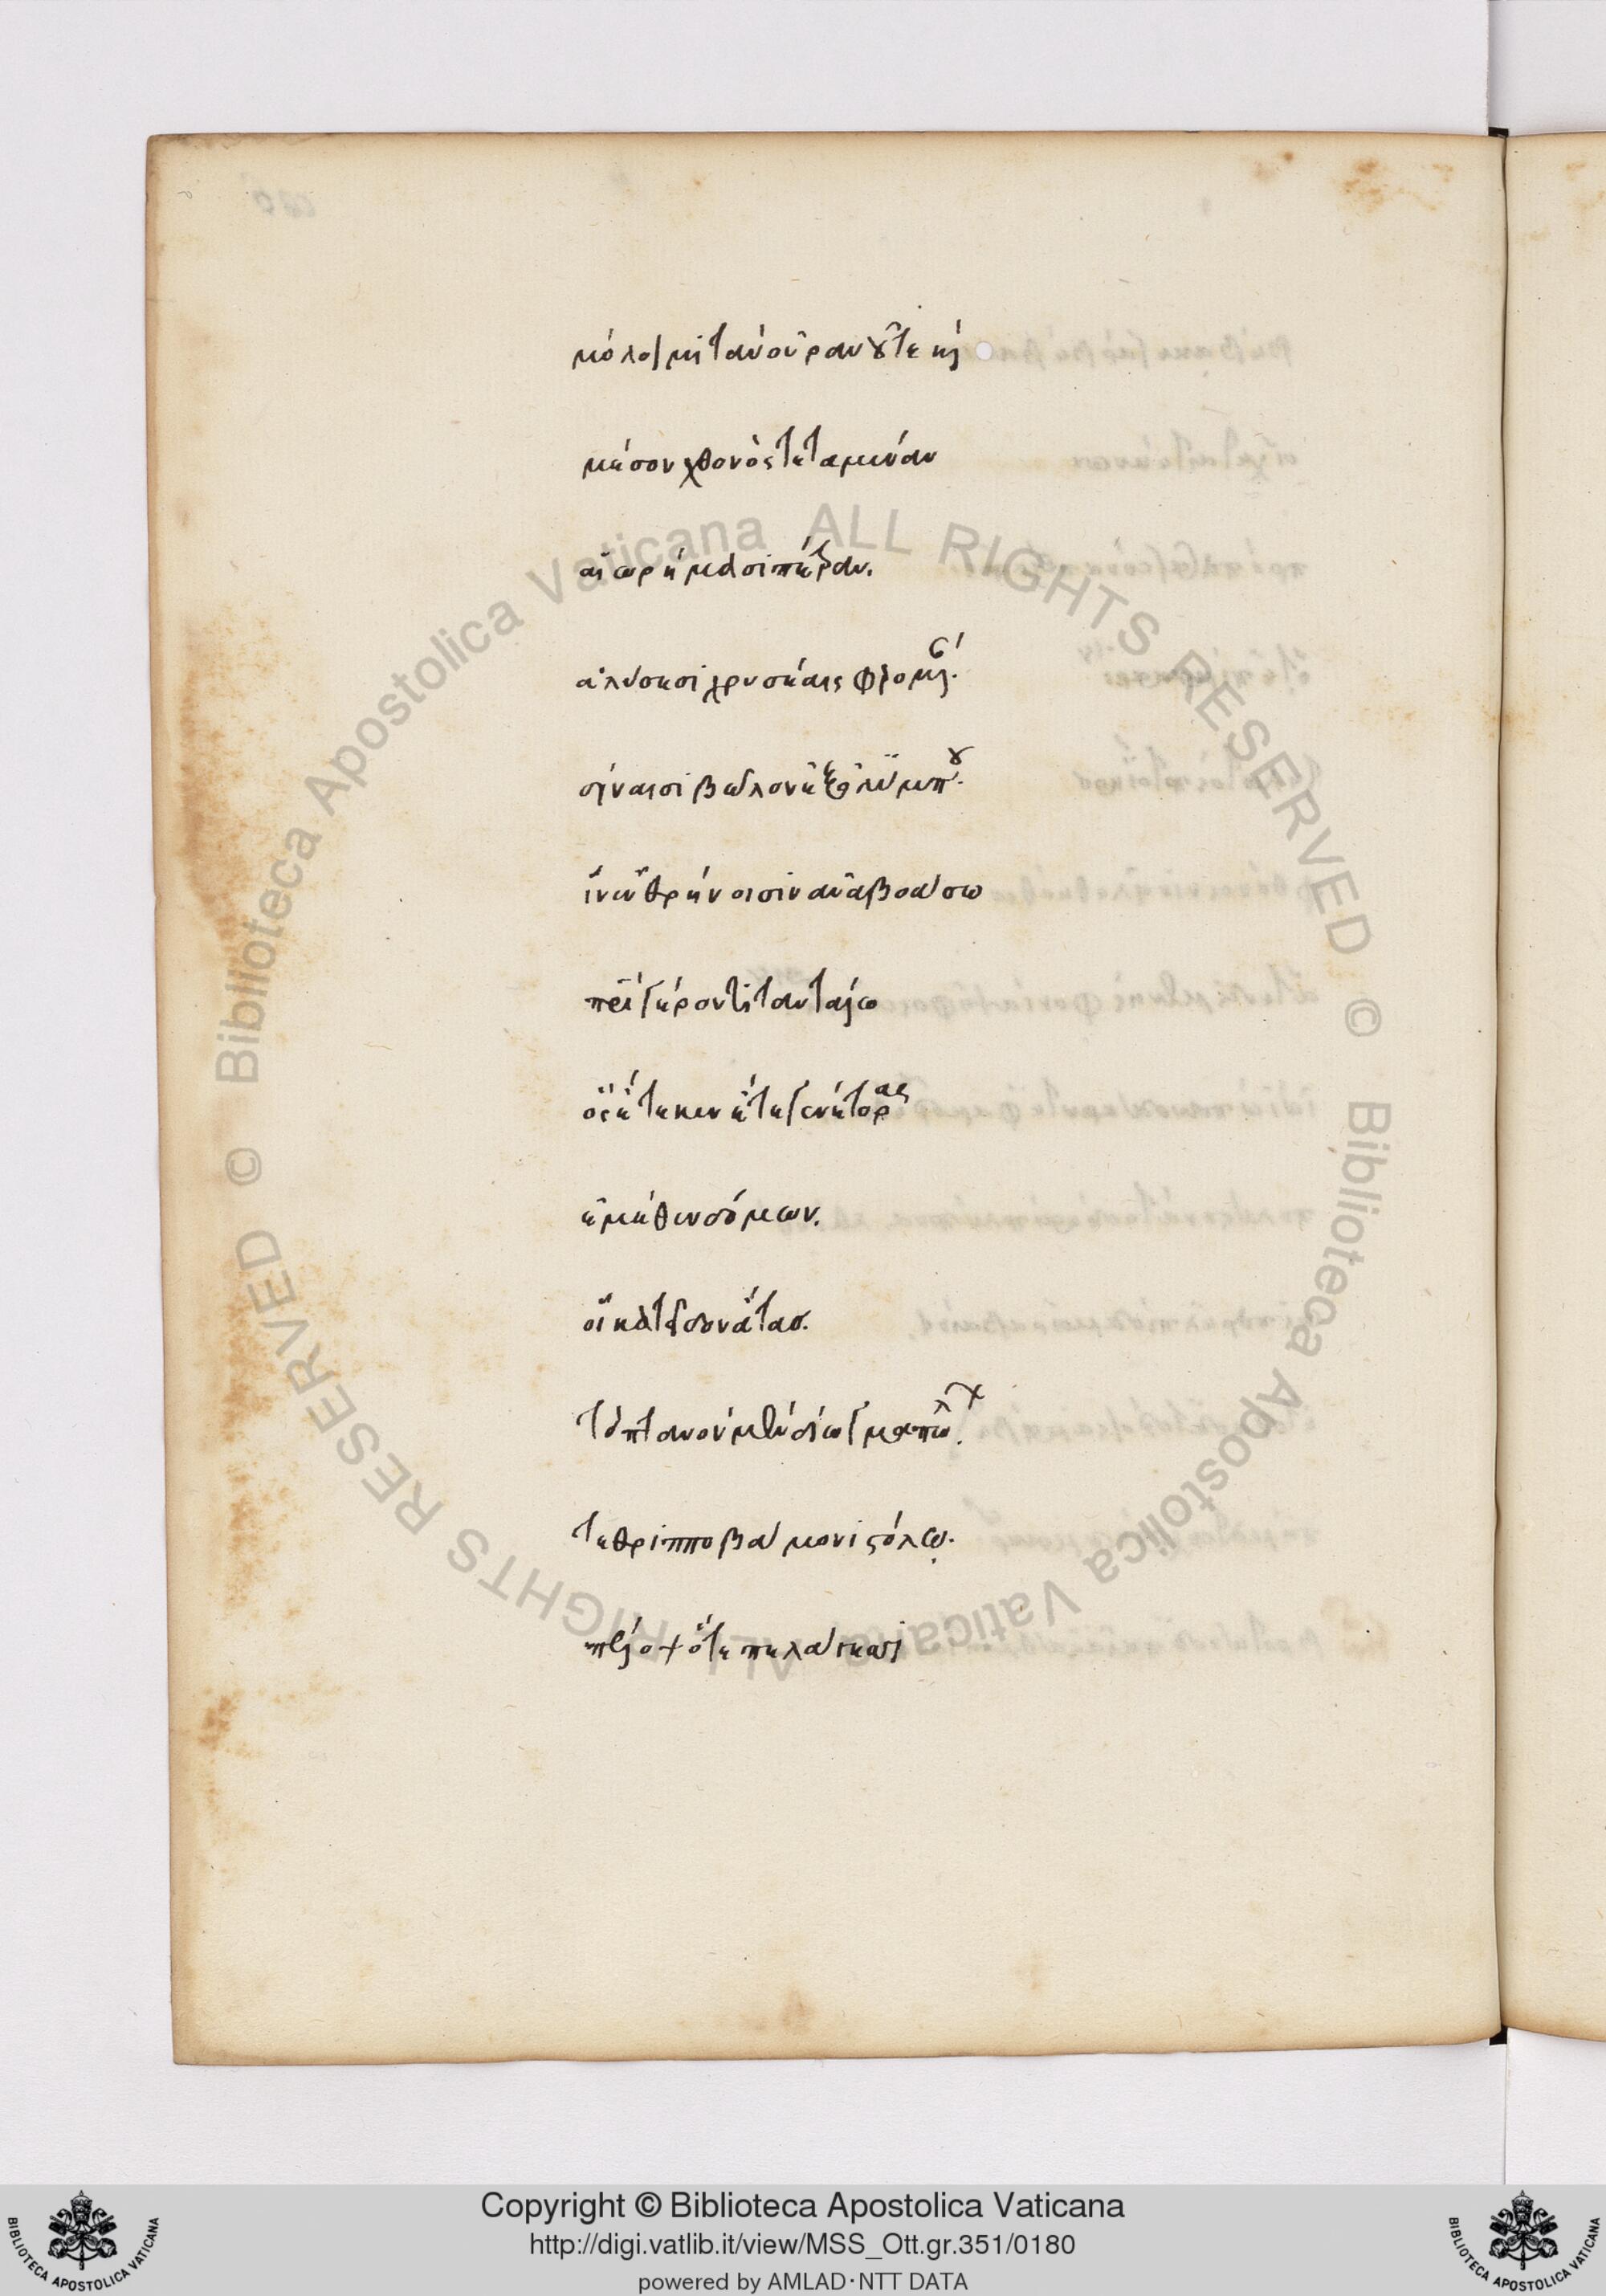 μόλοιμι τὰν οὐρανοῦ τε καὶ
μέσον χθονός τεταμέναν
αἰωρήμασι πέτραν.
ἁλύσεσι χρυσέαις φερομένας.
δίναισι βῶλον ἐξ ὀλύμπου.
ἵν' ἐν θρήνοισιν ἀναβοάσω
πατρὶ γέροντι ταντάλω
ὃς ἔτεκεν ἔτεκε γενέτορας
ἐμέθεν δόμων.
οἳ κατεῖδον ἄτας.
τὸ πτανὸν μὲν δίωγμα πώλων
τεθριπποβάμονι στόλῳ.
πέλοψ ὅτε πελάγεσι
Copyright © Biblioteca Apostolica Vaticana
http://digi.vatlib.it/view/MSS_Ott.gr.351/0180
powered by AMLAD·NTT DATA
BIBLIOTECA APOSTOLICA VATICANA
BIBLIOTECA APOSTOLICA VATICANA
© Biblioteca Apostolica Vaticana ALL RIGHTS RESERVED
© Biblioteca Apostolica Vaticana ALL RIGHTS RESERVED